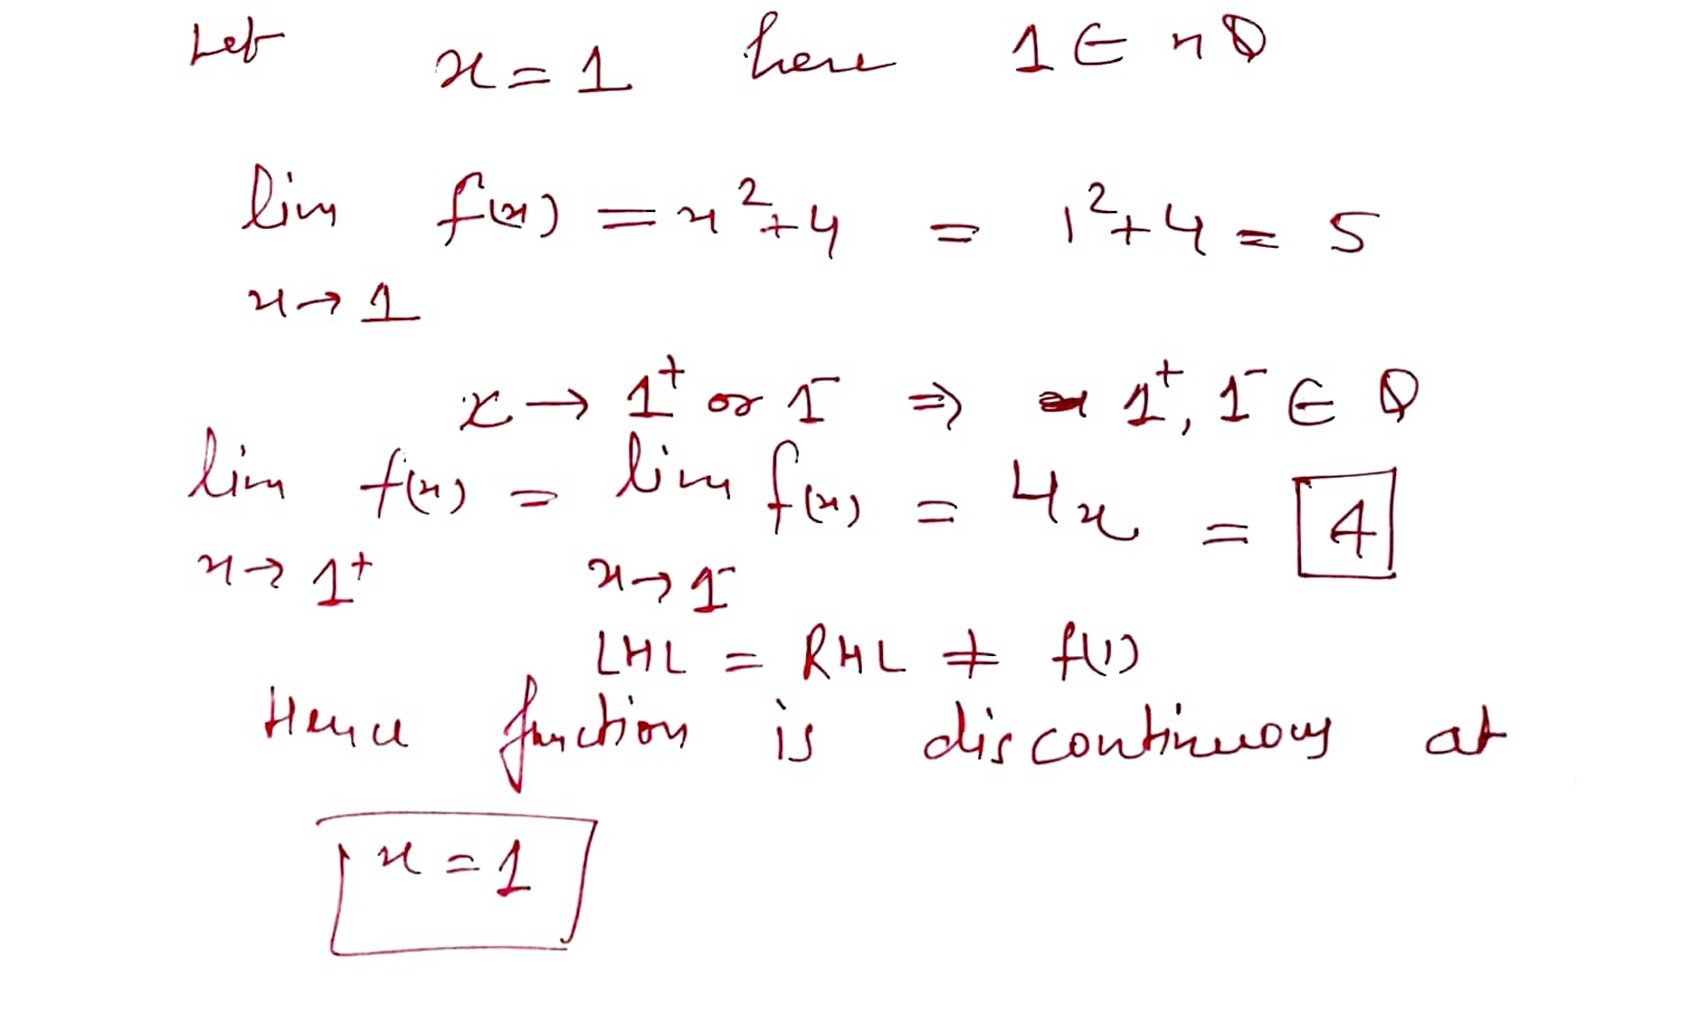 Let x = 1 here 1 ∈ nQ
lim f(x) = x²+4 = 1²+4 = 5
x→1
x → 1⁺ or 1⁻ ⇒ 1⁺, 1⁻ ∈ Q
lim f(x) = lim f(x) = 4x = 4
x→1⁺ x→1⁻
LHL = RHL ≠ f(1)
Hence function is discontinuous at
x = 1